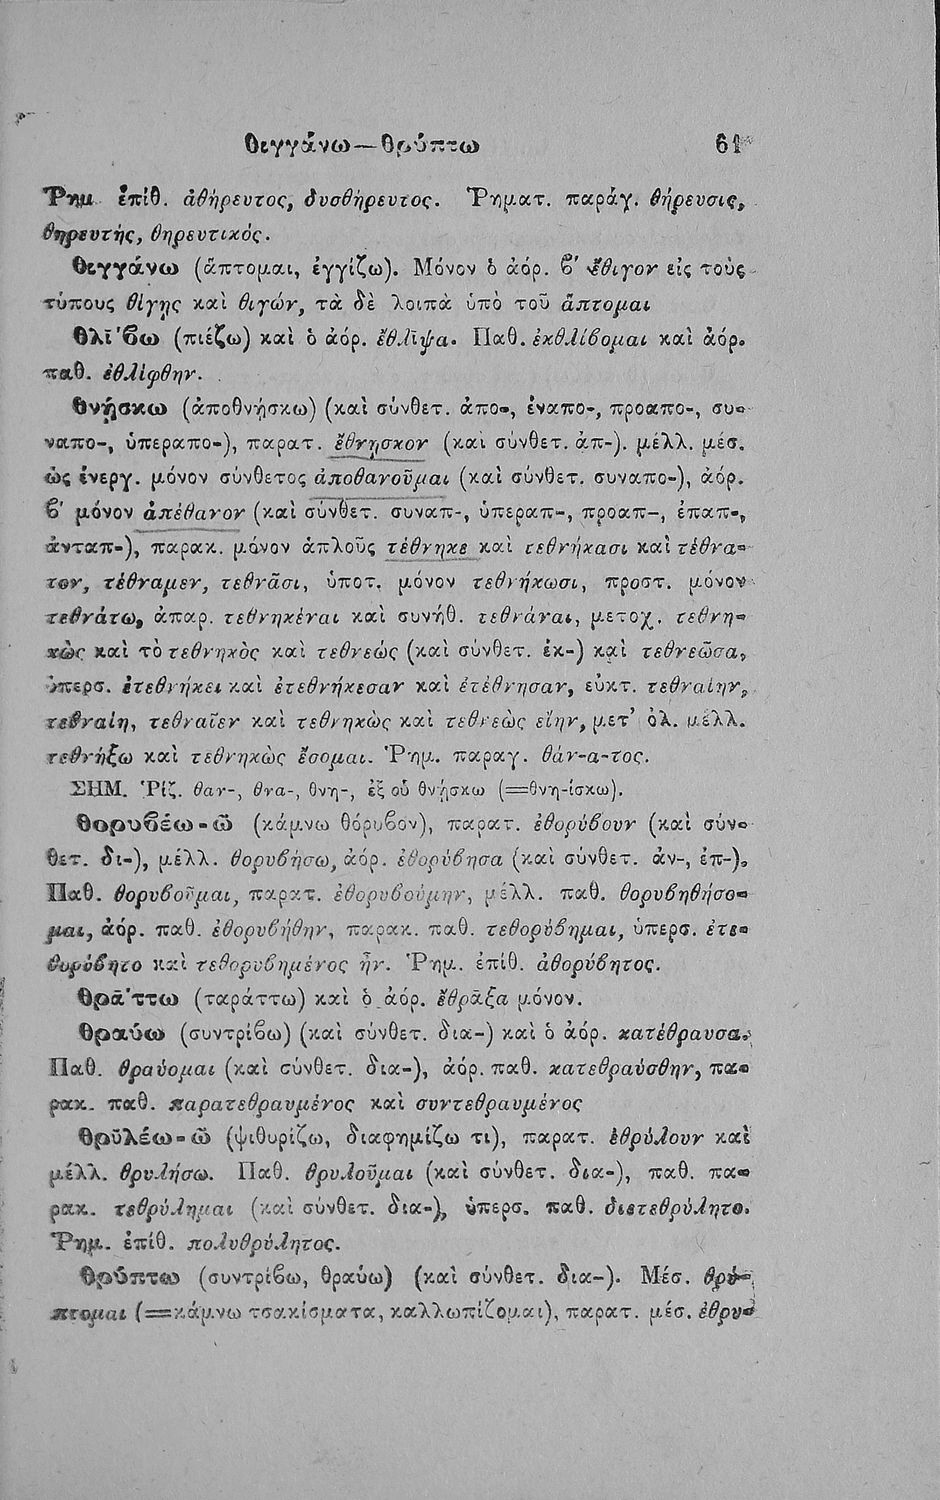 θιγγάνω — θρύπτω 61
Ῥημ ἐπίθ. ἀθήρευτος, δυσθήρευτος. Ῥηματ. παράγ. θήρευσις,
θηρευτής, θηρευτικός.
θιγγάνω (ἅπτομαι, ἐγγίζω). Μόνον ὁ ἀόρ. ϐ′ ἔθιγον εἰς τοὺς
τύπους θίγῃς καὶ θιγών, τὰ δὲ λοιπὰ ὑπὸ τοῦ ἅπτομαι
Θλί̄ϐω (πιέζω) καὶ ὁ ἀόρ. ἔθλῑψα. Παθ. ἐκθλίϐομαι καὶ ἀόρ.
παθ. ἐθλίφθην.
θνῄσκω (ἀποθνῄσκω) (καὶ σύνθετ. ἀπο-, ἐναπο-, προαπο-, συ-
ναπο-, ὑπεραπο-), παρατ. ἔθνῃσκον (καὶ σύνθετ. ἀπ-). μέλλ. μέσ.
ὡς ἐνεργ. μόνον σύνθετος ἀποθανοῦμαι (καὶ σύνθετ. συναπο-), ἀόρ.
ϐ′ μόνον ἀπέθανον (καὶ σύνθετ. συναπ-, ὑπεραπ-, προαπ-, ἐπαπ-,
ἀνταπ-), παρακ. μόνον ἁπλοῦς τέθνηκε καὶ τεθνήκασι καὶ τέθνα-
τον, τέθναμεν, τεθνᾶσι, ὑποτ. μόνον τεθνήκωσι, προστ. μόνον
τεθνάτω, ἀπαρ. τεθνηκέναι καὶ συνήθ. τεθνάναι, μετοχ. τεθνη-
κὼς καὶ τὸ τεθνηκὸς καὶ τεθνεώς (καὶ σύνθετ. ἐκ-) καὶ τεθνεῶσα,
ὑπερσ. ἐτεθνήκει καὶ ἐτεθνήκεσαν καὶ ἐτέθνησαν, εὐκτ. τεθναίην,
τεθναίη, τεθναῖεν καὶ τεθνηκὼς καὶ τεθνεὼς εἴην, μετ’ ὀλ. μέλλ.
τεθνήξω καὶ τεθνηκὼς ἔσομαι. Ῥημ. παραγ. θάν-α-τος.
ΣΗΜ. Ῥίζ. θαν-, θνα-, θνη-, ἐξ οὗ θνήσκω (=θνη-ίσκω).
θορυϐέω-ῶ (κάμνω θόρυϐον), παρατ. ἐθορύϐουν (καὶ σύν-
θετ. δι-), μέλλ. θορυϐήσω, ἀόρ. ἐθορύϐησα (καὶ σύνθετ. ἀν-, ἐπ-).
Παθ. θορυϐοῦμαι, παρατ. ἐθορυϐούμην, μέλλ. παθ. θορυϐηθήσο-
μαι, ἀόρ. παθ. ἐθορυϐήθην, παρακ. παθ. τεθορύϐημαι, ὑπερσ. ἐτε-
θορύϐητο καὶ τεθορυϐημένος ἦν. Ῥημ. ἐπίθ. ἀθορύϐητος.
θρά̄ττω (ταράττω) καὶ ὁ ἀόρ. ἔθρᾱξα μόνον.
θραύω (συντρίϐω) (καὶ σύνθετ. δια-) καὶ ὁ ἀόρ. κατέθραυσα.
Παθ. θραύομαι (καὶ σύνθετ. δια-), ἀόρ. παθ. κατεθραύσθην, πα-
ρακ. παθ. παρατεθραυμένος καὶ συντεθραυμένος
θρῡλέω-ῶ (ψιθυρίζω, διαφημίζω τι), παρατ. ἐθρύλουν καὶ
μέλλ. θρυλήσω. Παθ. θρυλοῦμαι (καὶ σύνθετ. δια-), παθ. πα-
ρακ. τεθρύλημαι (καὶ σύνθετ. δια-), ὑπερσ. παθ. διετεθρύλητο.
Ῥημ. ἐπίθ. πολυθρύλητος.
θρύπτω (συντρίϐω, θραύω) (καὶ σύνθετ. δια-). Μέσ. θρύ-
πτομαι (=κάμνω τσακίσματα, καλλωπίζομαι), παρατ. μέσ. ἐθρυ-